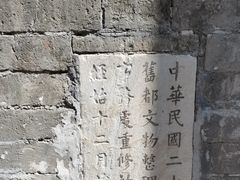 中華民國二十
舊都文物整理
實務處重修
經始十二月